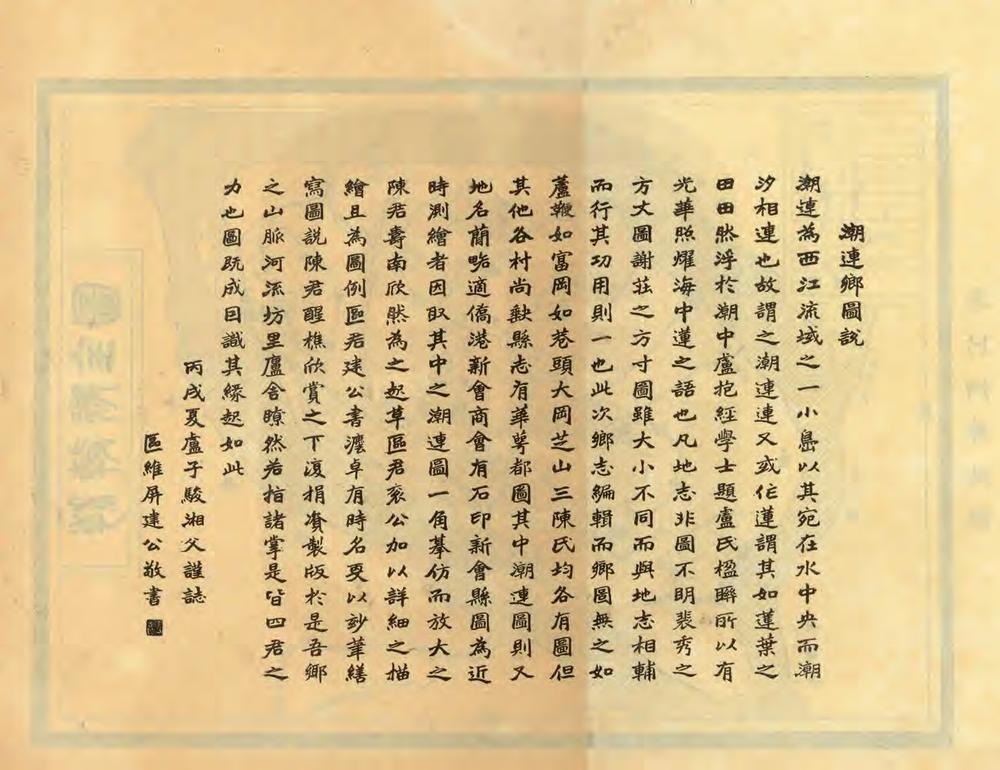 潮連鄉圖說
潮連為西江流域之一小島以其宛在水中央而潮
汐相連也故謂之潮連連又或作蓮謂其如蓮葉之
田田然浮於潮中盧抱經學士題盧氏楹聯所以有
光華照耀海中蓮之語也凡地志非圖不明裴秀之
方丈圖謝莊之方寸圖雖大小不同而與地志相輔
而行其功用則一也此次鄉志編輯而鄉圖無之如
蘆鞭如富岡如巷頭大岡芝山三陳氏均各有圖但
其他各村尚缺縣志有華萼都圖其中潮連圖則又
地名簡略適僑港新會商會有石印新會縣圖為近
時測繪者因取其中之潮連圖一角摹仿而放大之
陳君壽南欣然為之起草區君袞公加以詳細之描
繪且為圖例區君建公書灋卓有時名更以妙筆繕
寫圖說陳君醒樵欣賞之下復捐資製版於是吾鄉
之山脈河流坊里廬舍瞭然若指諸掌是皆四君之
力也圖既成因識其緣起如此
丙戌夏盧子駿湘父謹誌
區維屏建公敬書